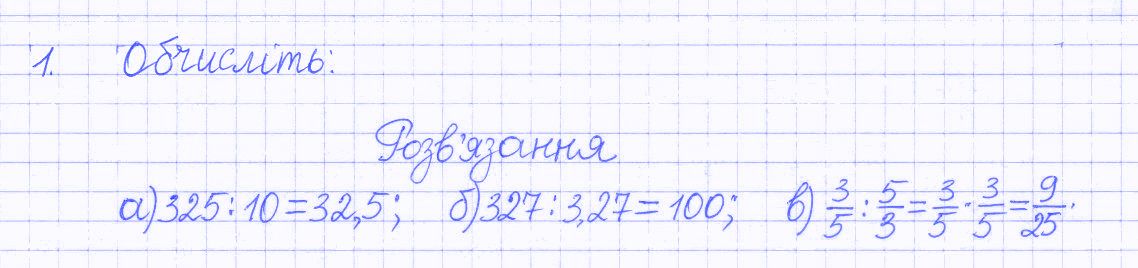 1. Обчисліть:
Розв'язання
а) 325 : 10 = 32,5; б) 327 : 3,27 = 100; в) 3/5 : 5/3 = 3/5 · 3/5 = 9/25.